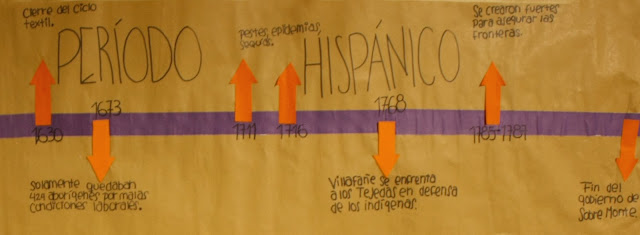 Cierre del ciclo
textil.
PERÍODO
HISPÁNICO
pestes, epidemias,
sequías.
Se crearon fuertes
para asegurar las
fronteras.
1630
1673
1711
1716
1768
1785-1789
Solamente quedaban
429 aborígenes por malas
condiciones laborales.
Villafañe se enfrenta
a los Tejedas en defensa
de los indígenas.
Fin del
gobierno de
Sobre Monte.